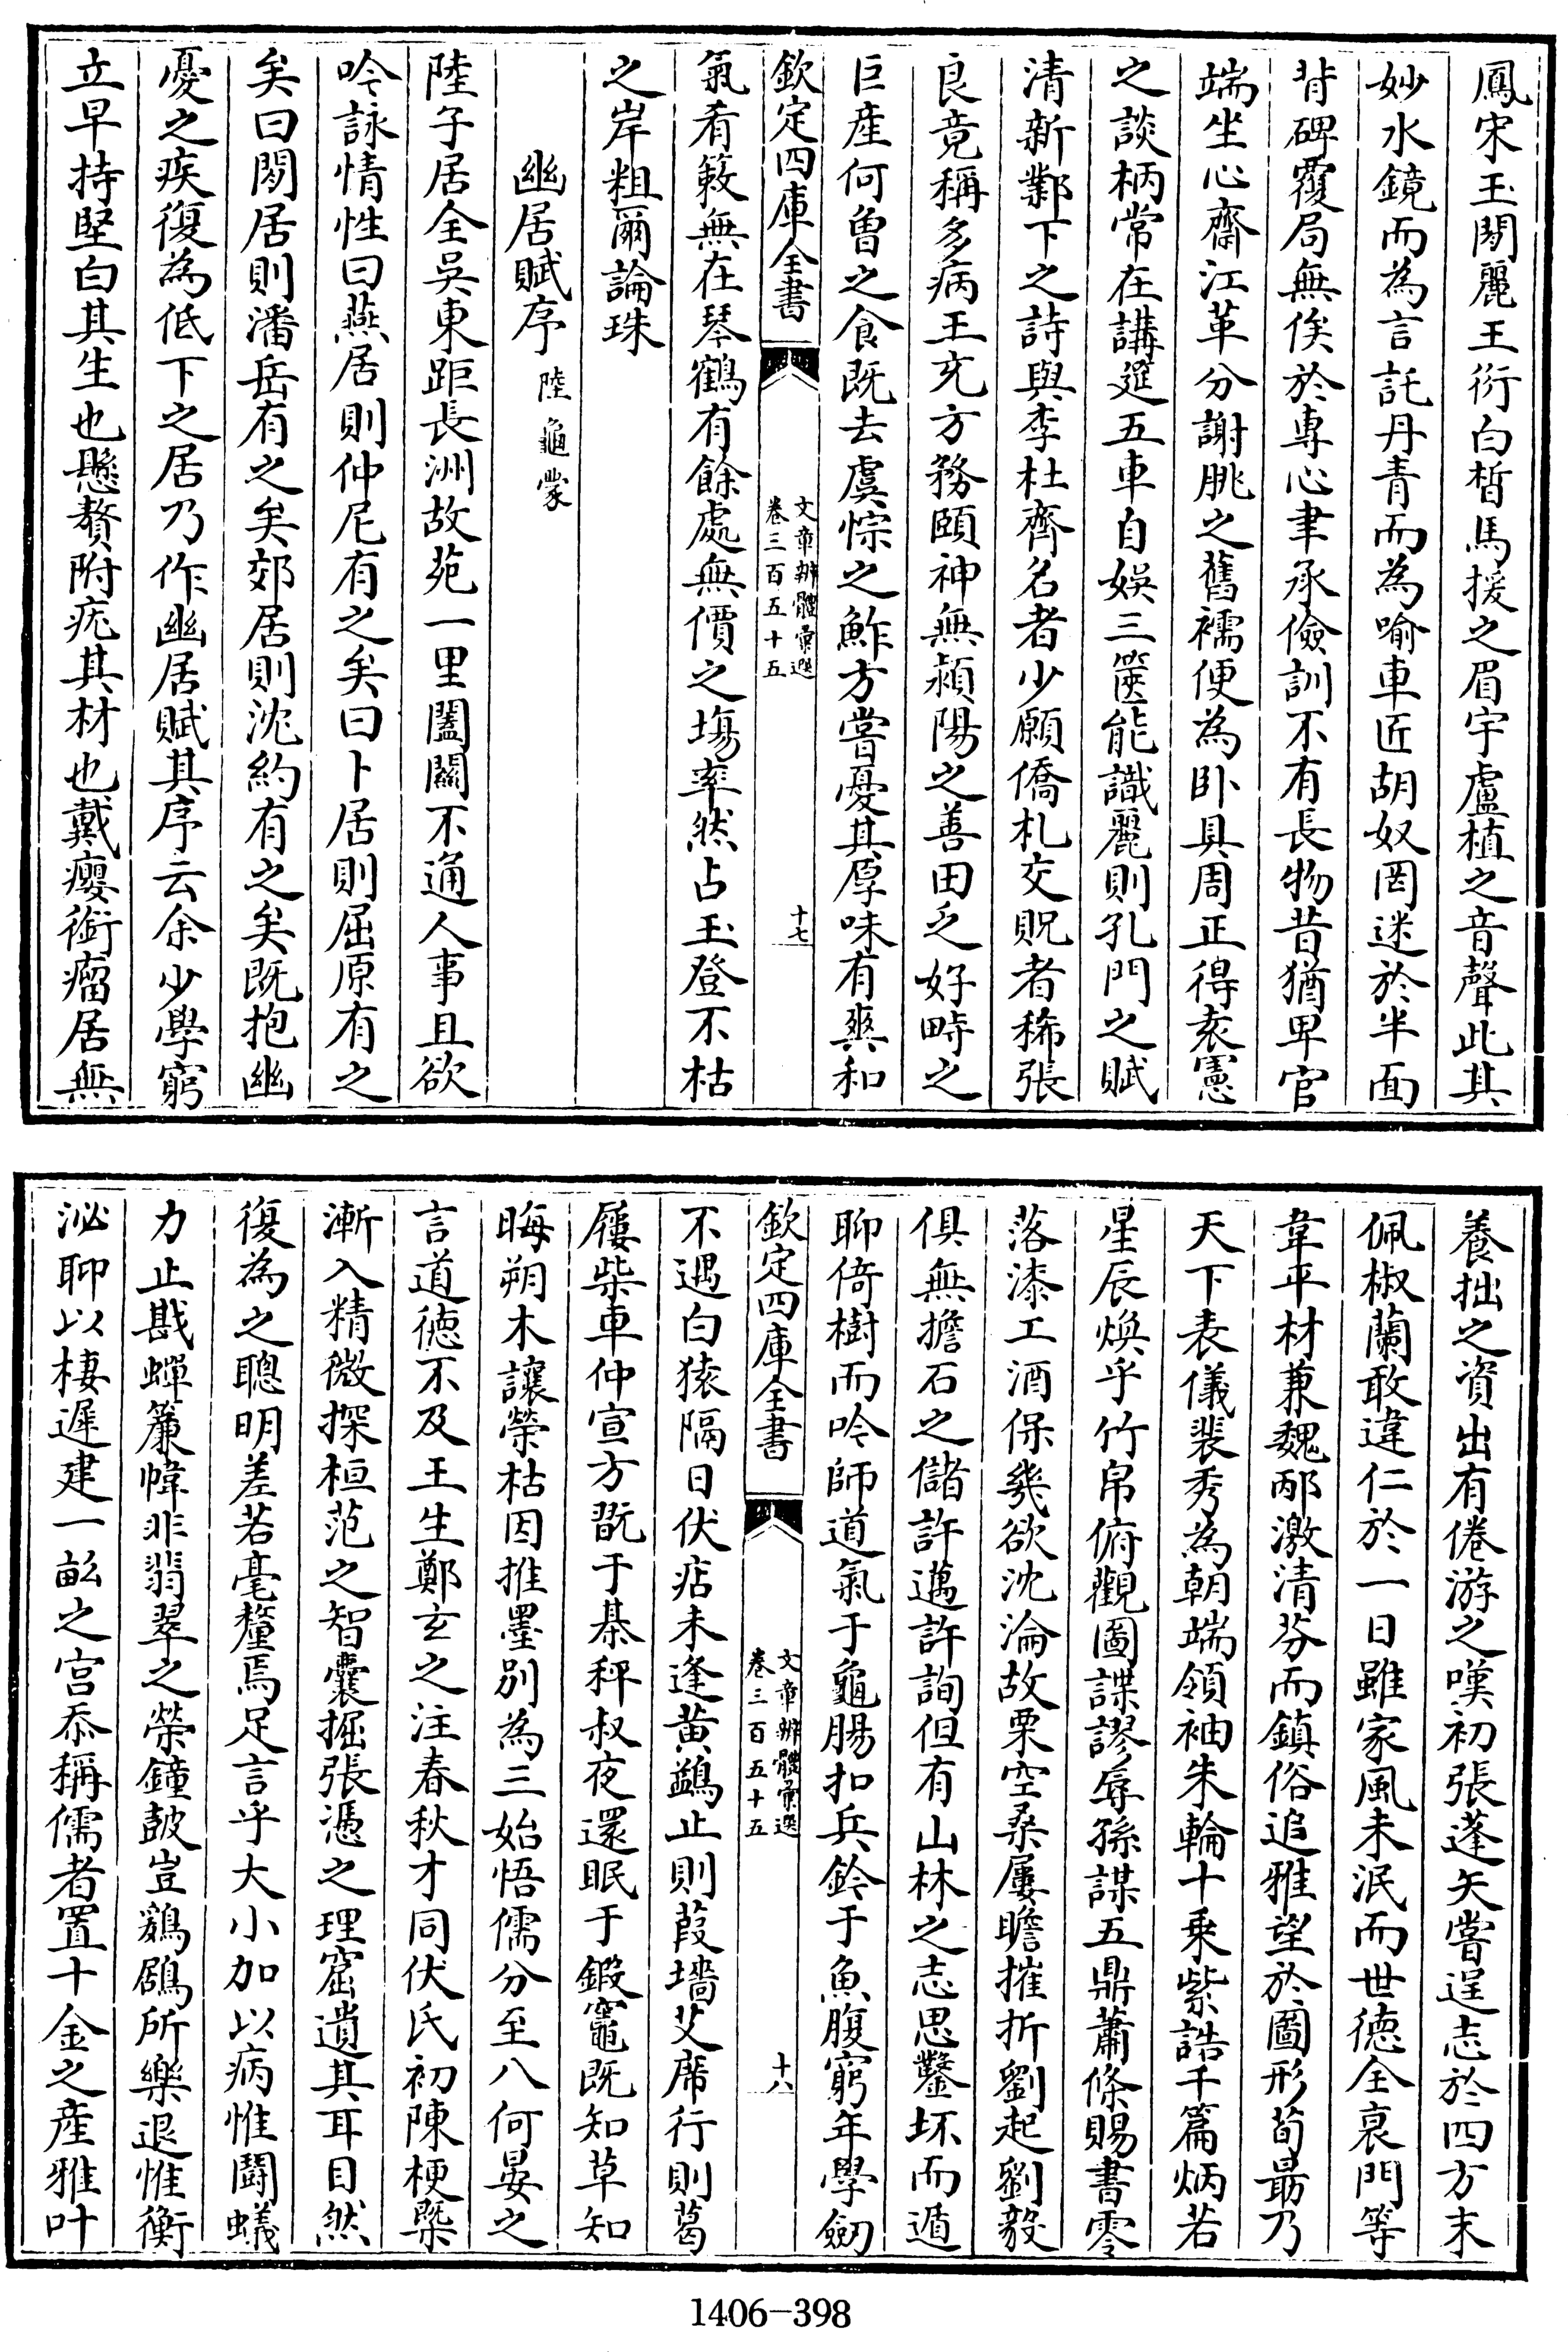 鳳宋玉閒麗王衍白皙馬援之眉宇盧植之音聲此其
妙水鏡而為言託丹青而為喻車匠胡奴罔迷於半面
背碑覆局無俟於專心聿承儉訓不有長物昔猶卑官
端坐心齋江革分謝朓之舊襦便為卧具周正得袁憲
之談柄常在講筵五車自娛三篋能識麗則孔門之賦
清新鄴下之詩與李杜齊名者少願僑札交貺者稀張
良竟稱多病王充方務頤神無潁陽之善田乏好畤之
巨産何曾之食既去虞悰之鮓方嘗憂其厚味有爽和
欽定四庫全書
文章辨體彙選
卷三百五十五
十七
氣肴簌無在琴鶴有餘處無價之塲率然占玉登不枯
之岸粗爾論珠
幽居賦序 陸龜蒙
陸子居全吳東距長洲故苑一里闔關不通人事且欲
吟詠情性曰燕居則仲尼有之矣曰卜居則屈原有之
矣曰閒居則潘岳有之矣郊居則沈約有之矣既抱幽
憂之疾復為低下之居乃作幽居賦其序云余少學窮
立早持堅白其生也懸贅附疣其材也戴癭銜瘤居無
養拙之資出有倦游之嘆初張蓬矢嘗逞志於四方末
佩椒蘭敢違仁於一日雖家風未泯而世德全衰門等
韋平材兼魏邴激清芬而鎮俗追雅望於圖形荀最乃
天下表儀裴秀為朝端領袖朱輪十乘紫誥千篇炳若
星辰煥乎竹帛俯觀圖諜謬辱孫謀五鼎蕭條賜書零
落漆工酒保幾欲沈淪故栗空桑屢瞻摧折劉起劉毅
俱無擔石之儲許邁許詢但有山林之志思鑿坏而遁
聊倚樹而吟師道氣于龜腸扣兵鈐于魚腹窮年學劒
欽定四庫全書
文章辨體彙選
卷三百五十五
十八
不遇白猿隔日伏痁未逢黄鷁止則葭墻艾席行則葛
屨柴車仲宣方翫于棊秤叔夜還眠于鍛竈既知草知
晦朔木讓榮枯因推墨別為三始悟儒分至八何晏之
言道德不及王生鄭玄之注春秋才同伏氏初陳梗槩
漸入精微探桓范之智囊掘張憑之理窟遺其耳目然
復為之聰明差若毫釐焉足言乎大小加以病惟鬭蟻
力止戡蟬簾幃非翡翠之榮鐘鼓豈鷄鶋所樂退惟衡
泌聊以棲遲建一畝之宫忝稱儒者置十金之産雅叶
1406-398